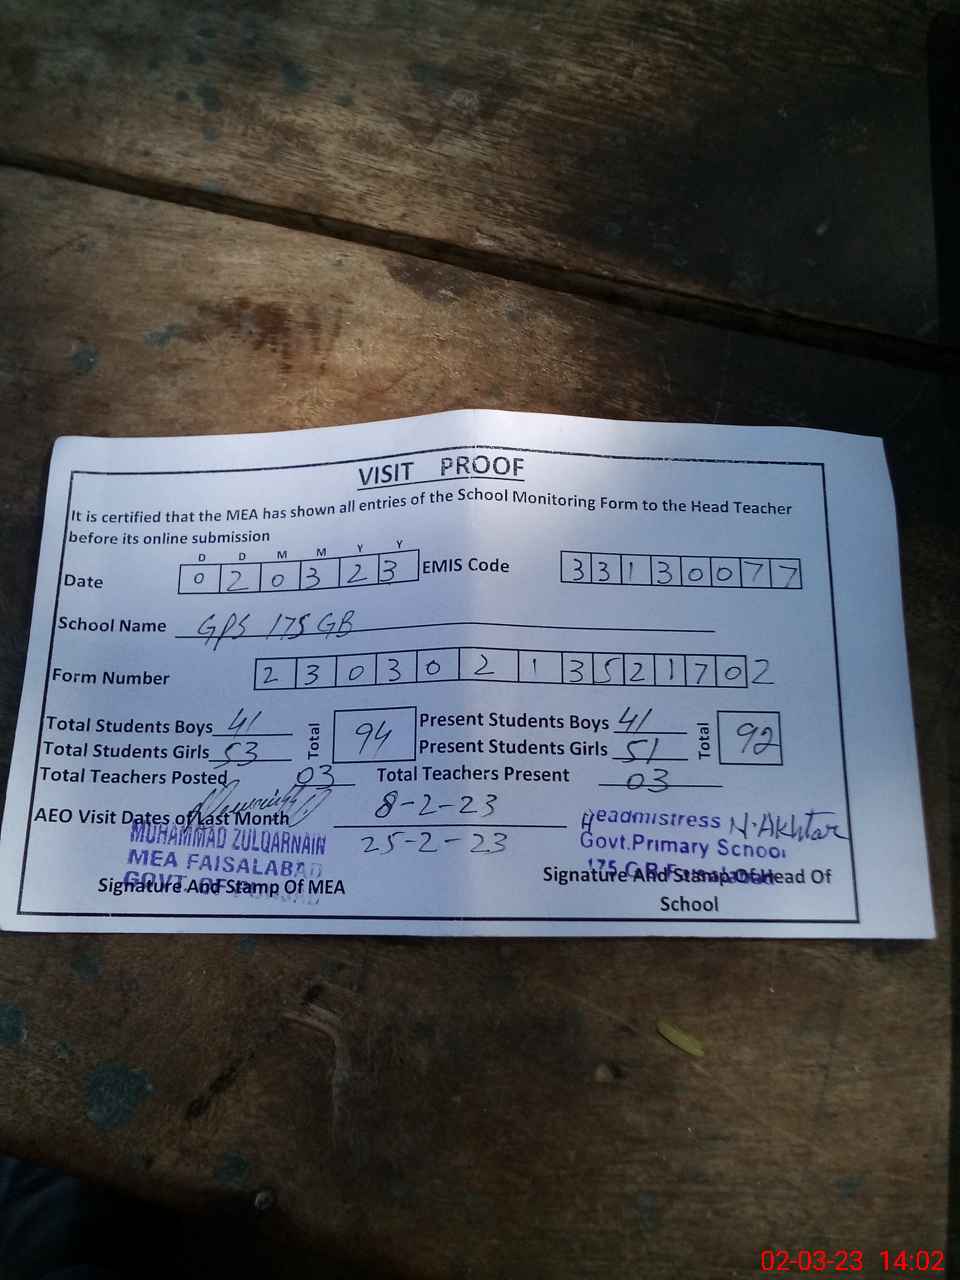 VISIT PROOF
It is certified that the MEA has shown all entries of the School Monitoring Form to the Head Teacher
before its online submission
D D M M Y Y
Date 0 2 0 3 2 3 EMIS Code 3 3 1 3 0 0 7 7
School Name GPS 175 GB
Form Number 2 3 0 3 0 2 1 3 5 2 1 7 0 2
Total Students Boys 41 Total 94 Present Students Boys 41 Total 92
Total Students Girls 53 Present Students Girls 51
Total Teachers Posted 03 Total Teachers Present 03
AEO Visit Dates of Last Month 8-2-23
25-2-23
MUHAMMAD ZULQARNAIN
MEA FAISALABAD
GOVT. OF
Signature And Stamp Of MEA
Headmistress N. Akhtar
Govt. Primary School
175 G.B.
Signature And Stamp Of Head Of
School
02-03-23 14:02